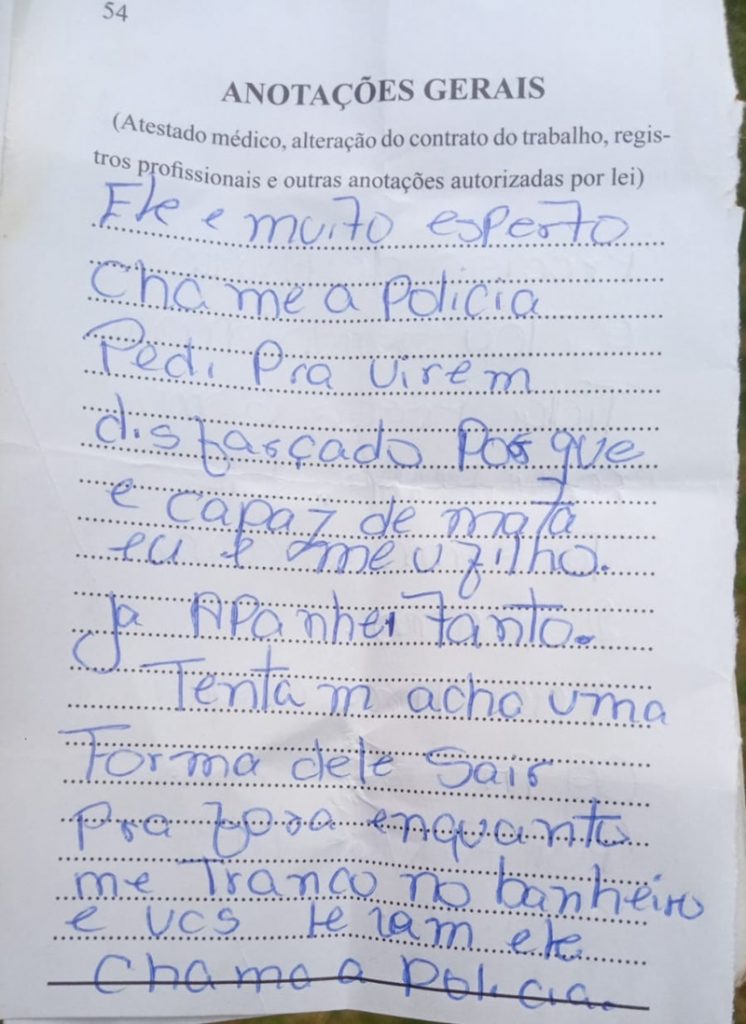 54
ANOTAÇÕES GERAIS
(Atestado médico, alteração do contrato do trabalho, regis-
tros profissionais e outras anotações autorizadas por lei)
Ele e muito esperto
Chame a Policia
Pedi Pra Virem
disfarçado Por que
e capaz de matá
eu e meu filho.
Ja APanhei tanto.
Tentam acho uma
Forma dele Sair
Pra fora enquanto
me Tranco no banheiro
e vcs ele
Chama a Policia.